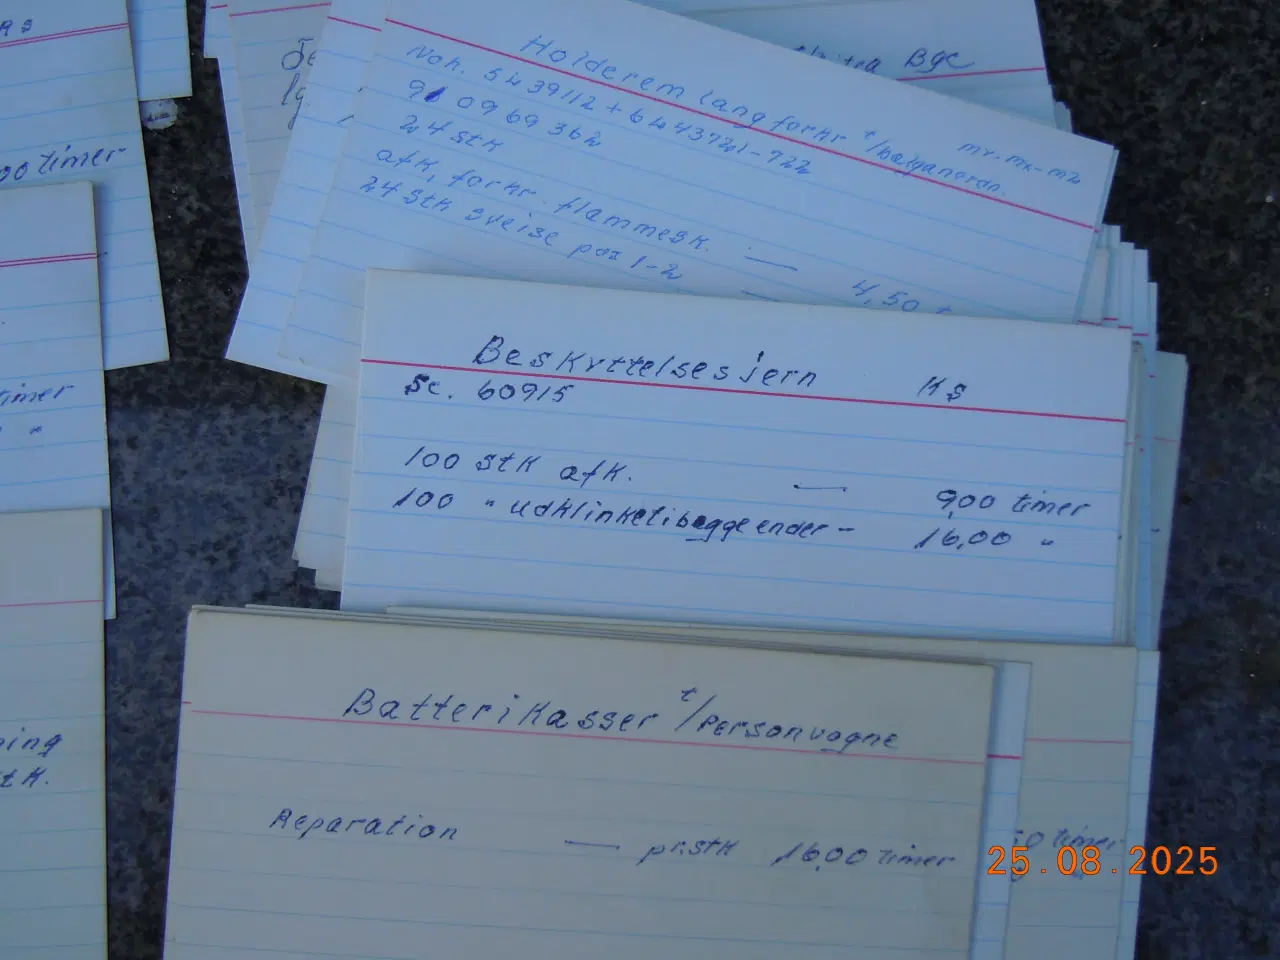 00 timer
timer
"
ning
stk.
Bge
Holderem lang forkr. t/bølganordn.
mv-mx-mz
Noh. 5439112 + 6443721-722
910969362
24 stk
afk, forkr. flammesk. — 4,50 t
24 stk sveise pos 1-2 —
Beskyttelsesjern KS
Sc. 60915
100 stk afk. — 9,00 timer
100 " udklinket i begge ender - 16,00 "
Batterikasser t/personvogne
Reparation — pr. stk 16,00 timer
50 timer
25.08.2025